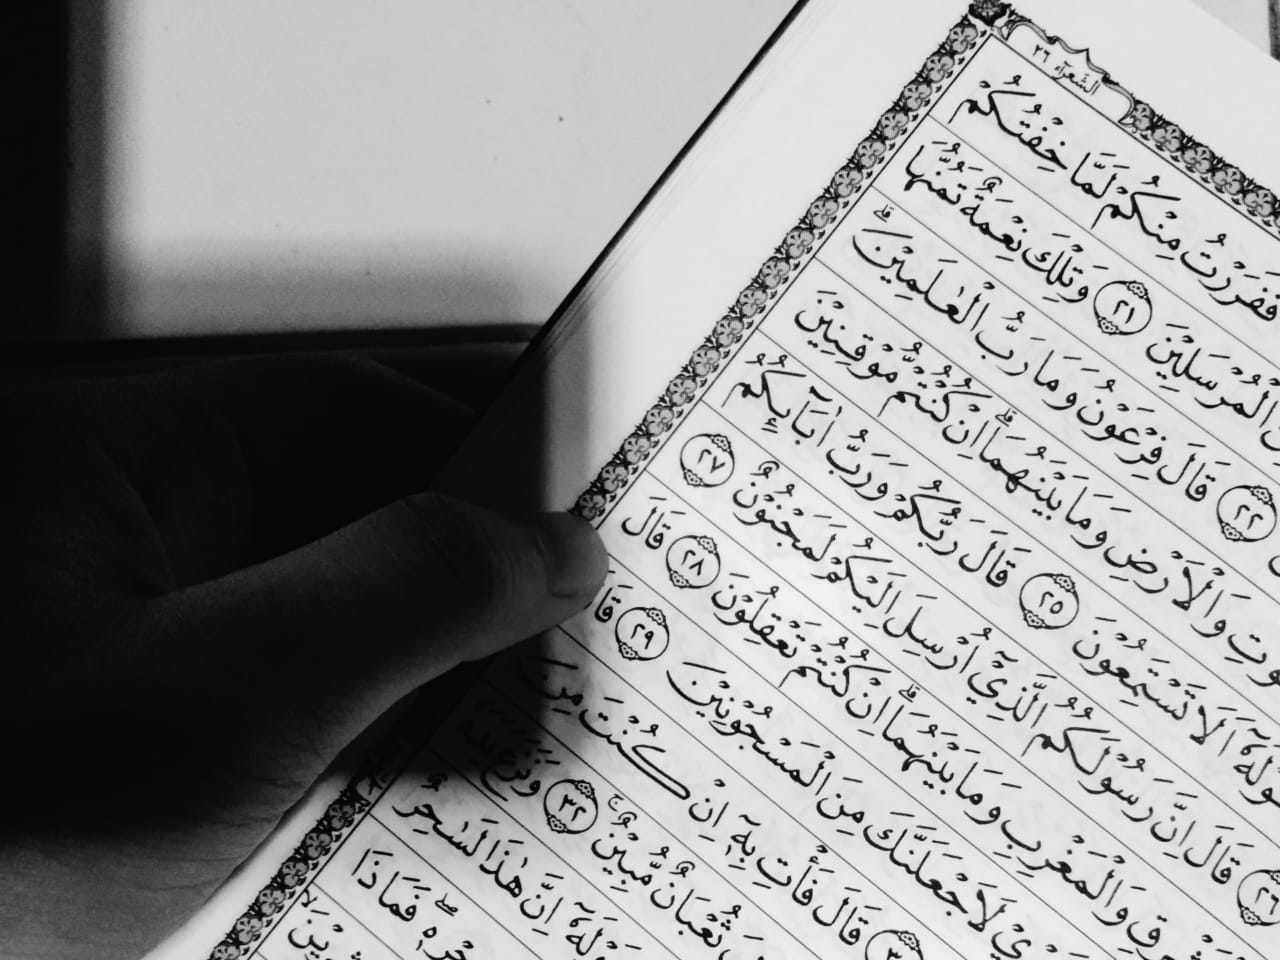 الشعرآء ٢٦
فَفَرَرْتُ مِنْكُمْ لَمَّا خِفْتُكُمْ
الْمُرْسَلِيْنَ ﴿٢١﴾ وَتِلْكَ نِعْمَةٌ تَمُنُّهَا
﴿٢٢﴾ قَالَ فِرْعَوْنُ وَمَا رَبُّ الْعٰلَمِيْنَ ؕ
وَالْاَرْضِ وَمَا بَيْنَهُمَا ؕ اِنْ كُنْتُمْ مُّوْقِنِيْنَ
اَلَا تَسْتَمِعُوْنَ ﴿٢٥﴾ قَالَ رَبُّكُمْ وَرَبُّ اٰبَآىِٕكُمُ
﴿٢٦﴾ قَالَ اِنَّ رَسُوْلَكُمُ الَّذِيْۤ اُرْسِلَ اِلَيْكُمْ لَمَجْنُوْنٌ ﴿٢٧﴾
وَالْمَغْرِبِ وَمَا بَيْنَهُمَا ؕ اِنْ كُنْتُمْ تَعْقِلُوْنَ ﴿٢٨﴾ قَالَ
لَاَجْعَلَنَّكَ مِنَ الْمَسْجُوْنِيْنَ ﴿٢٩﴾
قَالَ فَاْتِ بِهٖۤ اِنْ كُنْتَ مِنَ
ثُعْبَانٌ مُّبِيْنٌ ﴿٣٢﴾ وَّنَزَعَ يَدَهٗ
اِنَّ هٰذَا لَسٰحِرٌ
فَمَاذَا